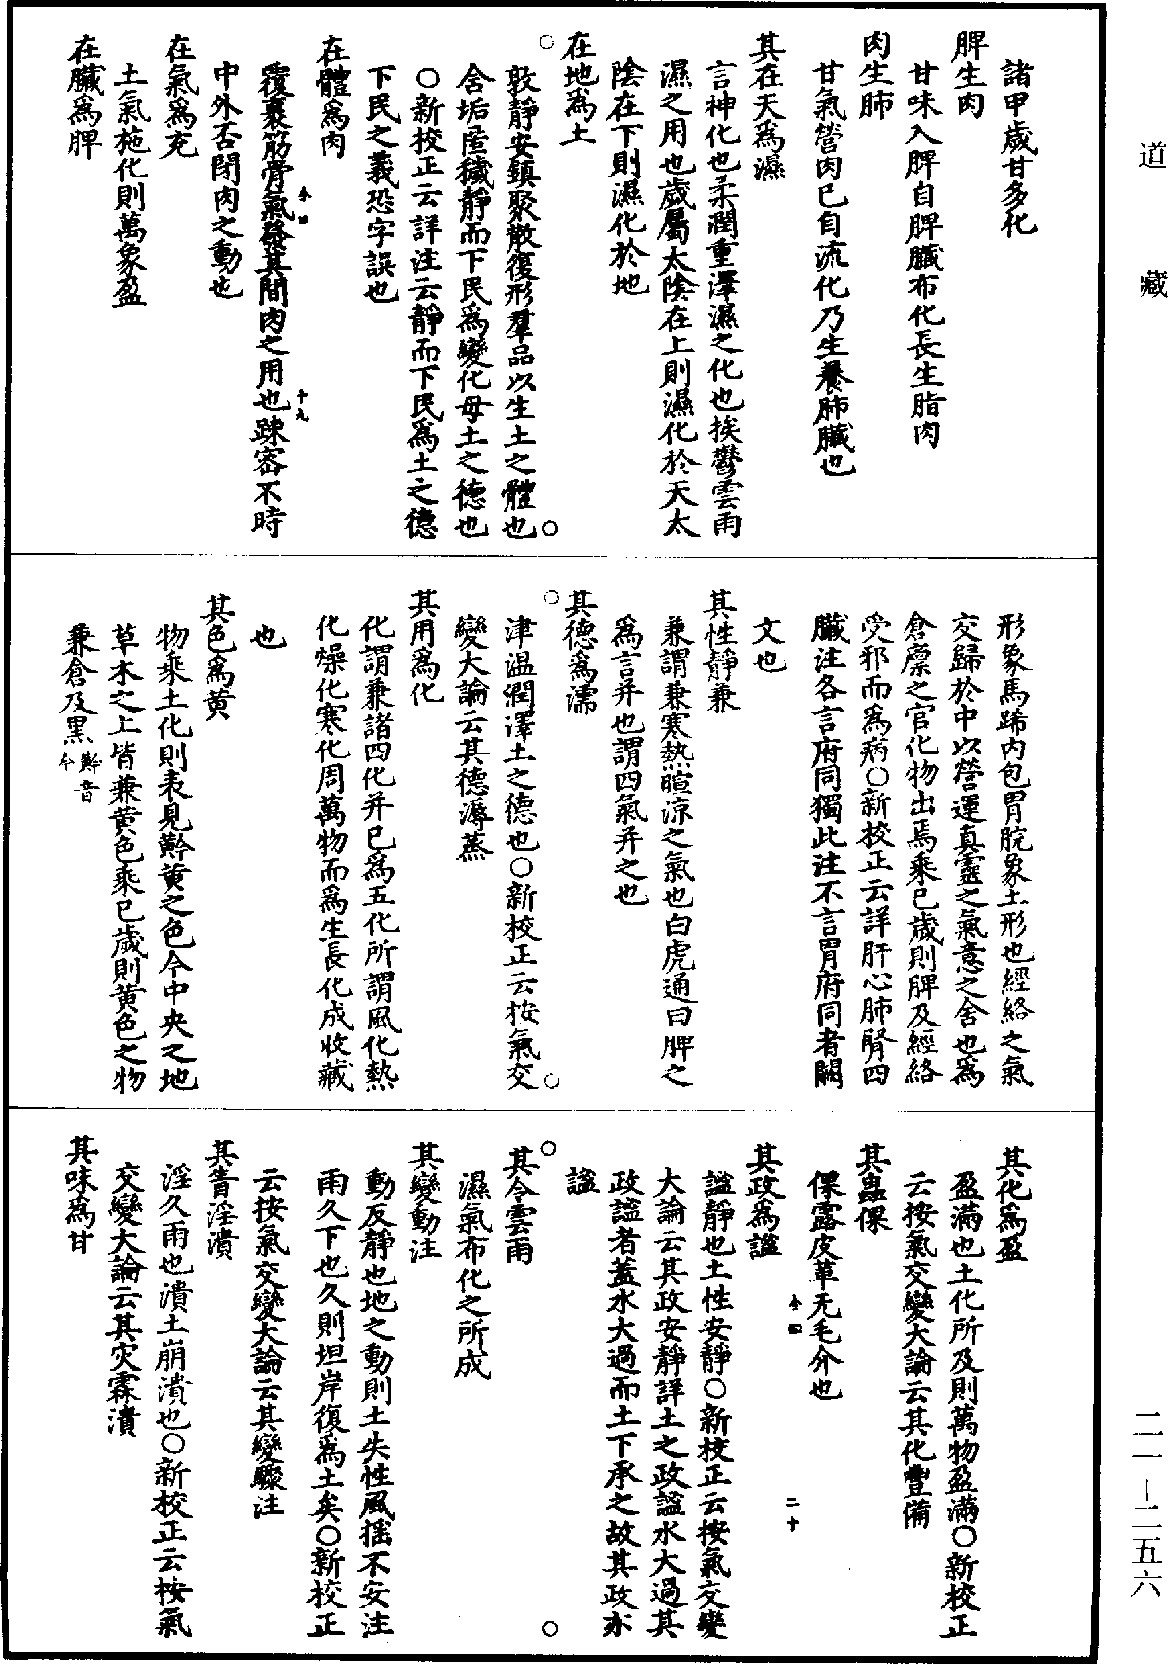 道藏
諸甲歲甘多化
脾生肉
甘味入脾自脾臟布化長生脂肉
肉生肺
甘氣營肉已自流化乃生養肺臟也
其在天為濕
言神化也柔潤重澤濕之化也挨鬱雲雨
濕之用也歲屬太陰在上則濕化於天太
陰在下則濕化於地
在地為土
敦靜安鎮聚散復形羣品以生土之體也
含垢匿穢靜而下民為變化母土之德也
○新校正云詳注云靜而下民為土之德
下民之義恐字誤也
在體為肉
覆裹筋骨氣發其間肉之用也踈密不時
中外否閉肉之動也
在氣為充
土氣施化則萬象盈
在臟為脾
叅四
十九
形象馬蹄内包胃脘象土形也經絡之氣
交歸於中以營運真靈之氣意之舍也為
倉廩之官化物出焉乘已歲則脾及經絡
受邪而為病○新校正云詳肝心肺腎四
臟注各言府同獨此注不言胃府同者闕
文也
其性靜兼
兼謂兼寒熱暄涼之氣也白虎通曰脾之
為言并也謂四氣并之也
其德為濡
津温潤澤土之德也○新校正云按氣交
變大論云其德溽蒸
其用為化
化謂兼諸四化并已為五化所謂風化熱
化燥化寒化周萬物而為生長化成收藏
也
其色為黄
物乘土化則表見黅黄之色今中央之地
草木之上皆兼黄色乘已歲則黄色之物
兼倉及黑黅音今
其化為盈
盈滿也土化所及則萬物盈滿○新校正
云按氣交變大論云其化豐備
其蟲倮
倮露皮革无毛介也
叅四
二十
其政為謐
謐靜也土性安靜○新校正云按氣交變
大論云其政安靜詳土之政謐水大過其
政謐者蓋水大過而土下承之故其政亦
謐
其令雲雨
濕氣布化之所成
其變動注
動反靜也地之動則土失性風摇不安注
雨久下也久則垣岸復為土矣○新校正
云按氣交變大論云其變驟注
其眚淫潰
淫久雨也潰土崩潰也○新校正云按氣
交變大論云其灾霖潰
其味為甘
二一—二五六